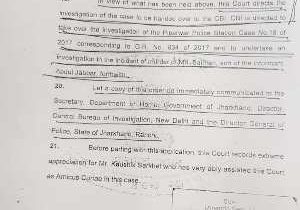 In view of what has been held above, this Court directs the
investigation of the case to be handed over to the CBI. CBI is directed to
take over the investigation of the Police Station Case No.18 of
2017 corresponding to G.R. No. 834 of 2017 and to undertake an
investigation in the incident of murder of Md. son of the informant
Abdul Jabbar
20. Let a copy of this order be immediately communicated to the
Secretary, Department of Home, Government of Jharkhand, Director,
Central Bureau of Investigation, New Delhi and the Director General of
Police, State of Jharkhand, Ranchi.
21. Before parting with this application, this Court records extreme
appreciation for Mr. Kaushik Sarkhel who has very ably assisted this Court
as Amicus Curiae in this case.